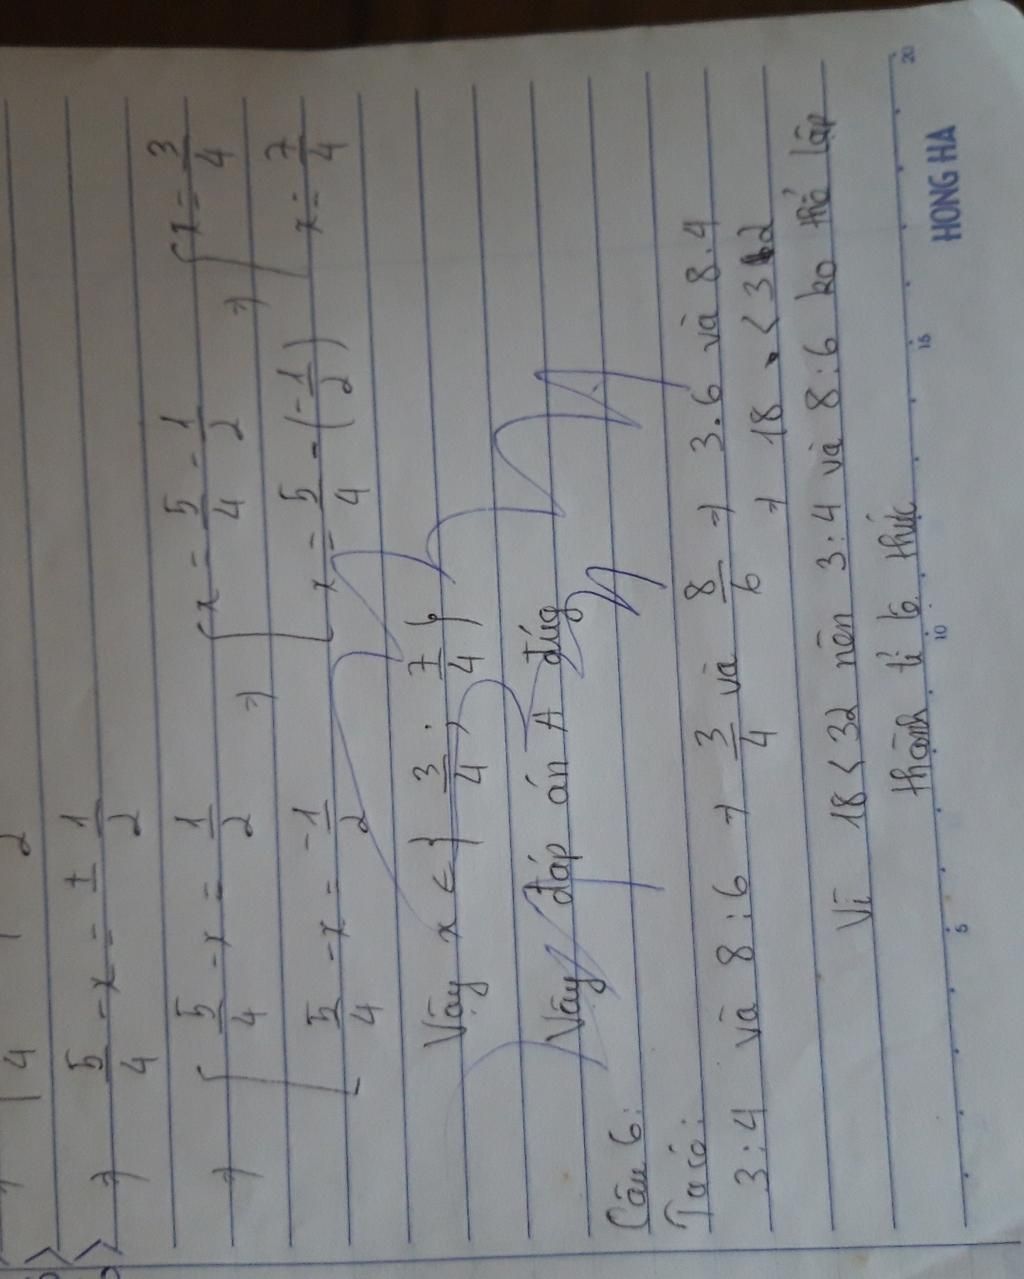 ⇒ 5/4 - x = ± 1/2
⇒ [ 5/4 - x = 1/2 ⇒ [ x = 5/4 - 1/2 ⇒ [ x = 3/4
5/4 - x = -1/2 x = 5/4 - (-1/2) x = 7/4
Vậy x ∈ { 3/4 ; 7/4 }
Vậy đáp án A đúg
Câu 6:
Ta có:
3 : 4 và 8 : 6 ⇒ 3/4 và 8/6 ⇒ 3.6 và 8.4
⇒ 18 < 32
Vì 18 < 32 nên 3 : 4 và 8 : 6 ko thể lập
thành tỉ lệ thức
5 10 15 20
HONG HA